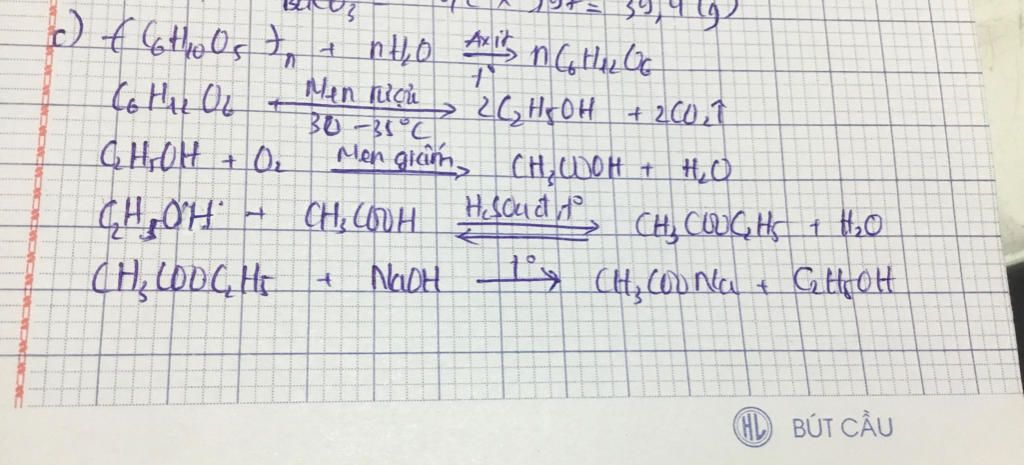 BaCO₃ = 39,4 (g)
c) ( C₆H₁₀O₅ )ₙ + nH₂O Axit t° → nC₆H₁₂O₆
C₆H₁₂O₆ Men rượu 30 - 35°C → 2C₂H₅OH + 2CO₂↑
C₂H₅OH + O₂ Men giấm → CH₃COOH + H₂O
C₂H₅OH + CH₃COOH H₂SO₄ đ, t° ⇌ CH₃COOC₂H₅ + H₂O
CH₃COOC₂H₅ + NaOH t° → CH₃COONa + C₂H₅OH
HL BÚT CẦU